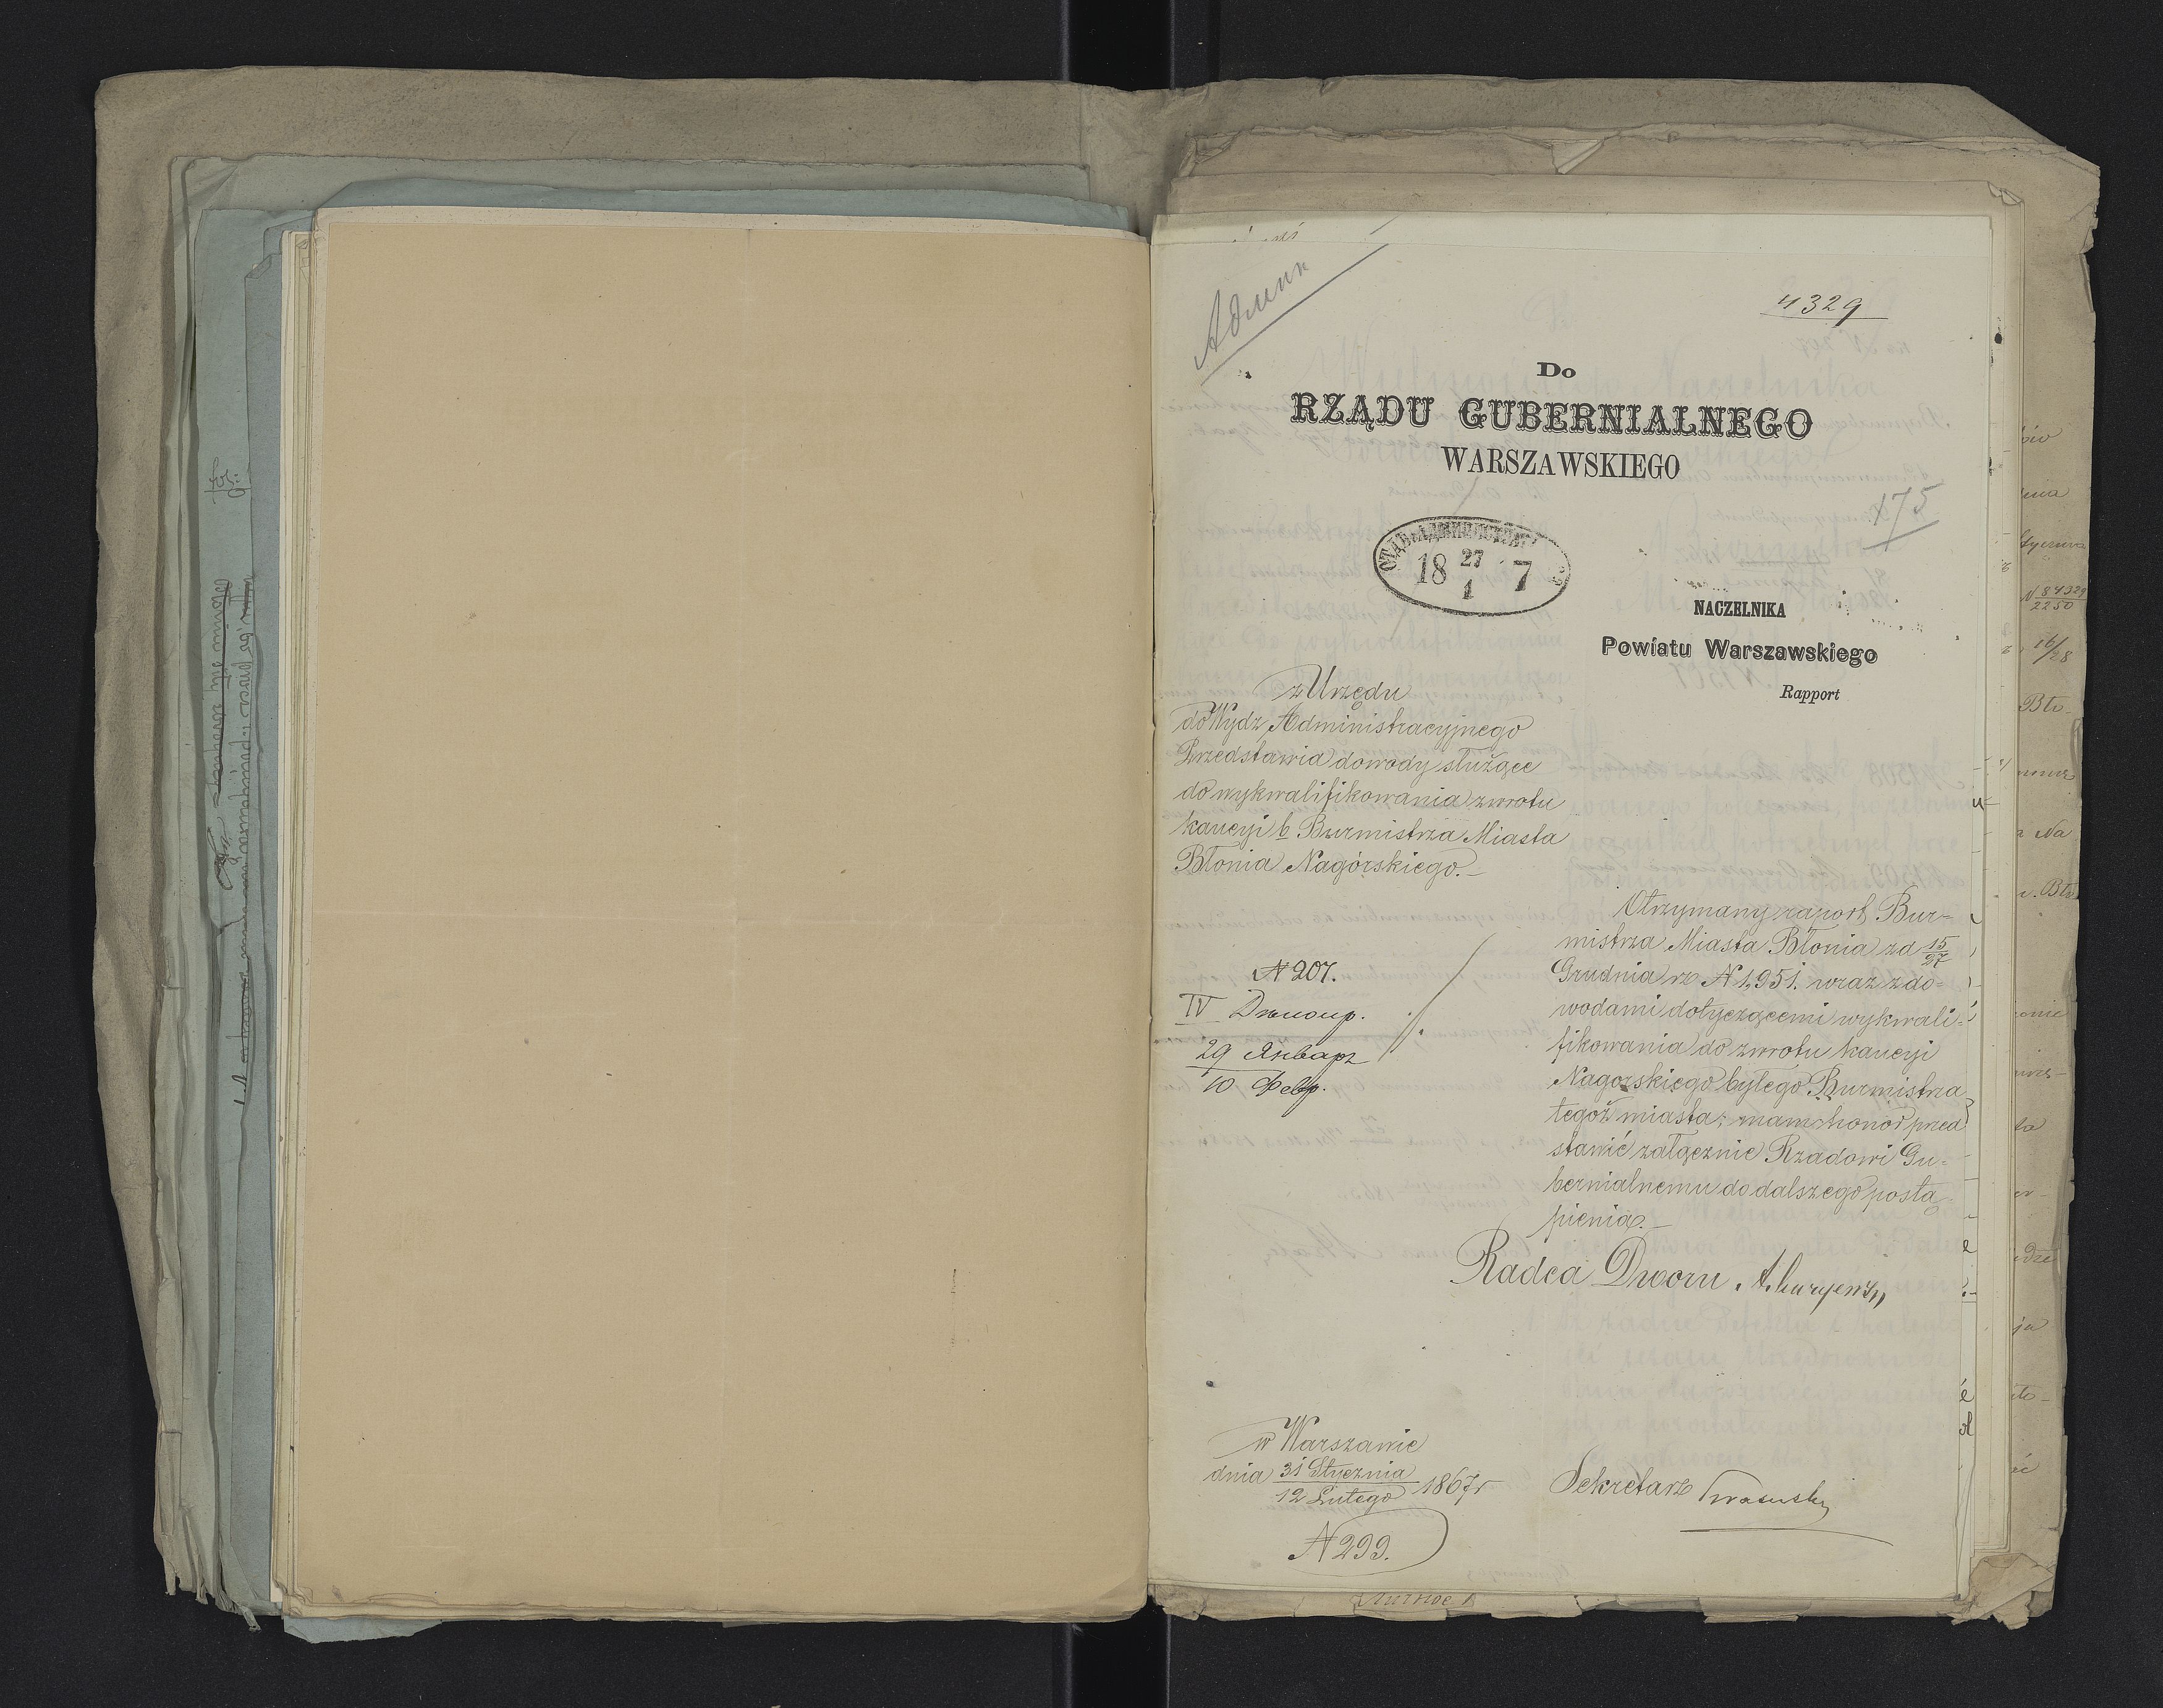 Админ
4329
Do
RZĄDU GUBERNIALNEGO
WARSZAWSKIEGO
175
18 27/1 7
NACZELNIKA
Powiatu Warszawskiego
Rapport
z Urzędu
do Wydz Administracyjnego
Przedstawia dowody służące
do wykwalifikowania zwrotu
kaucyi b Burmistrza Miasta
Błonia Nagórskiego.—
Otrzymany raport Bur=
mistrza Miasta Błonia z d 15/27
Grudnia rz N 1,951. wraz z do=
wodami dotyczącemi wykwali=
fikowania do zwrotu kaucyi
Nagorskiego byłego Burmistrza
tegoż miasta; mam honor przed
stawić załącznie Rządowi Gu=
bernialnemu do dalszego postą
pienia.—
N 207.
IV
29 Января
10 Февр.
Radca Dworu
w Warszawie
dnia 31 Stycznia / 12 Lutego 1867 r
N 299.
Sekretarz